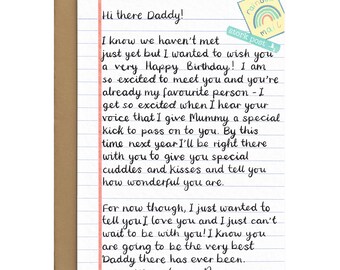 Hi there Daddy!
I know we haven't met
just yet but I wanted to wish you
a very Happy Birthday! I am
so excited to meet you and you're
already my favourite person - I
get so excited when I hear your
voice that I give Mummy a special
kick to pass on to you. By this
time next year I'll be right there
with you to give you special
cuddles and kisses and tell you
how wonderful you are.
For now though, I just wanted to
tell you I love you and I just can't
wait to be with you! I know you
are going to be the very best
Daddy there has ever been.
stork post